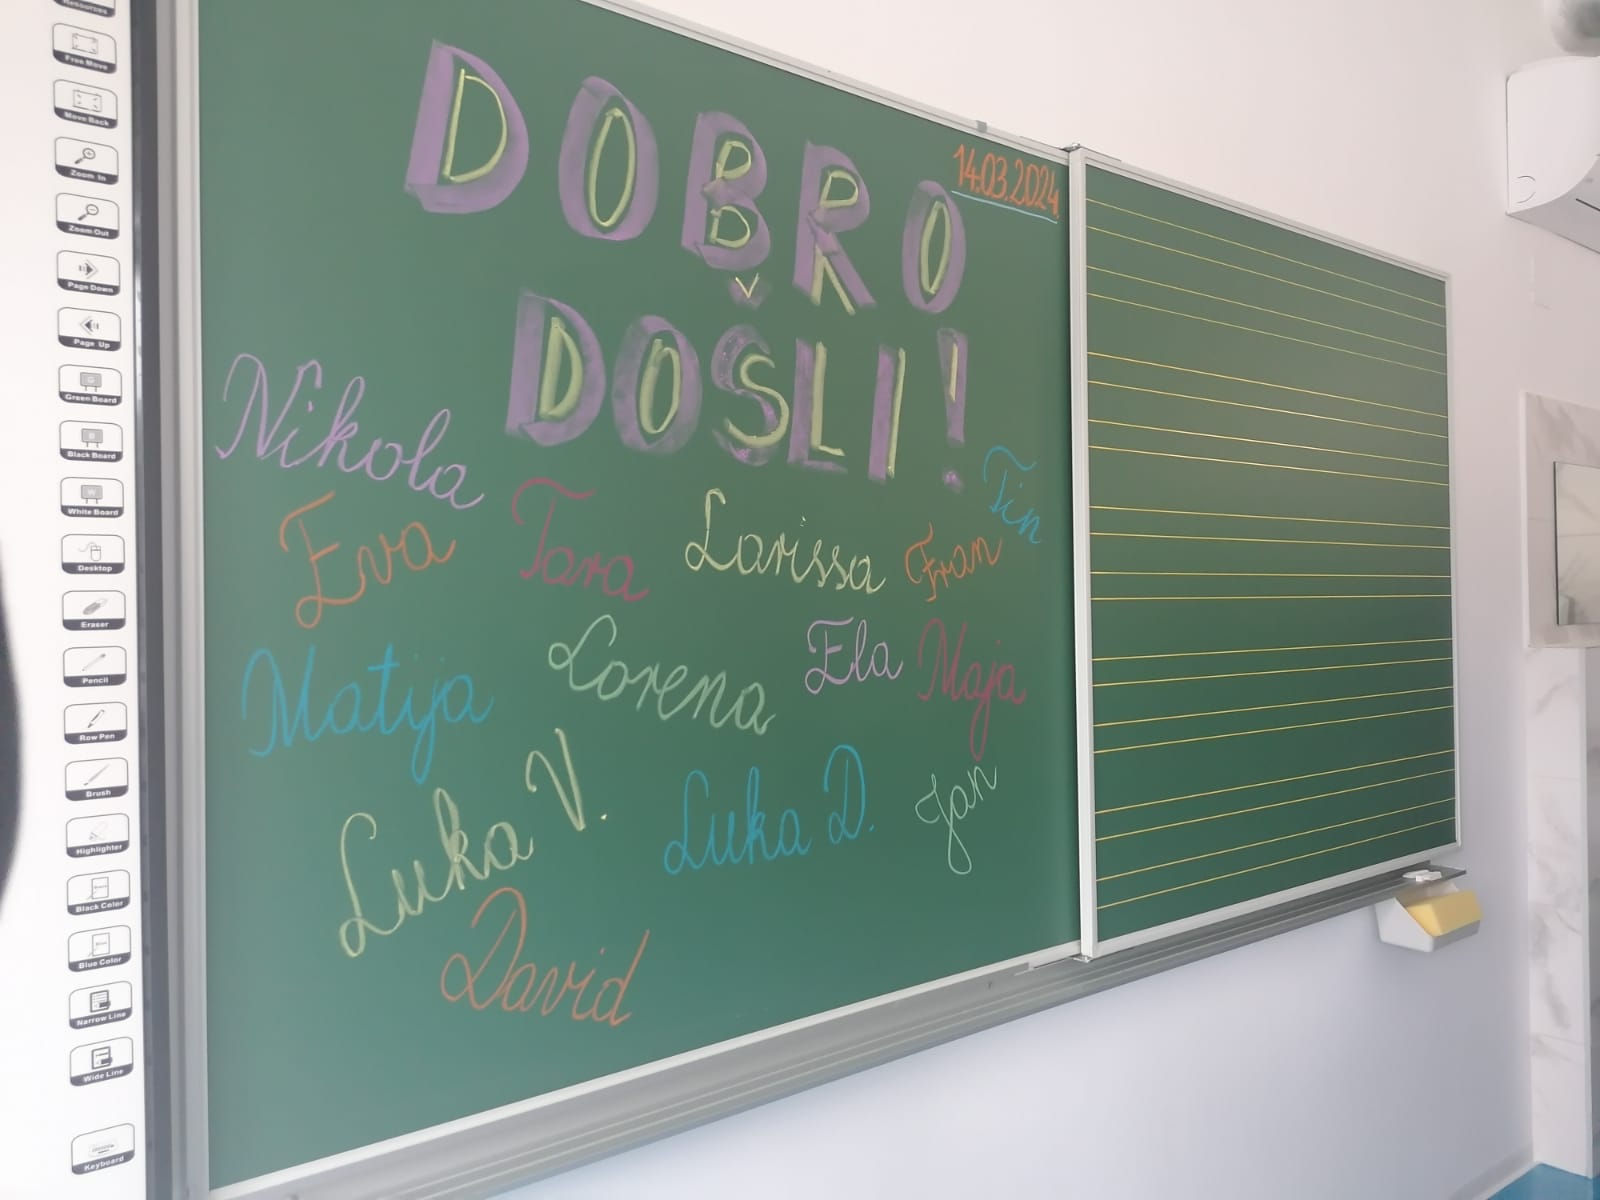 Resources
Free Move
Move Back
Zoom In
Zoom Out
Page Down
Page Up
G
Green Board
B
Black Board
W
White Board
Desktop
Eraser
Pencil
Row Pen
Brush
Highlighter
Black Color
Blue Color
Narrow Line
Wide Line
Keyboard
14.03.2024.
DOBRO
DOŠLI!
Nikola
Tin
Eva Tara Larissa Fran
Matija Lorena Ela Maja
Luka V. Luka D. Jan
David